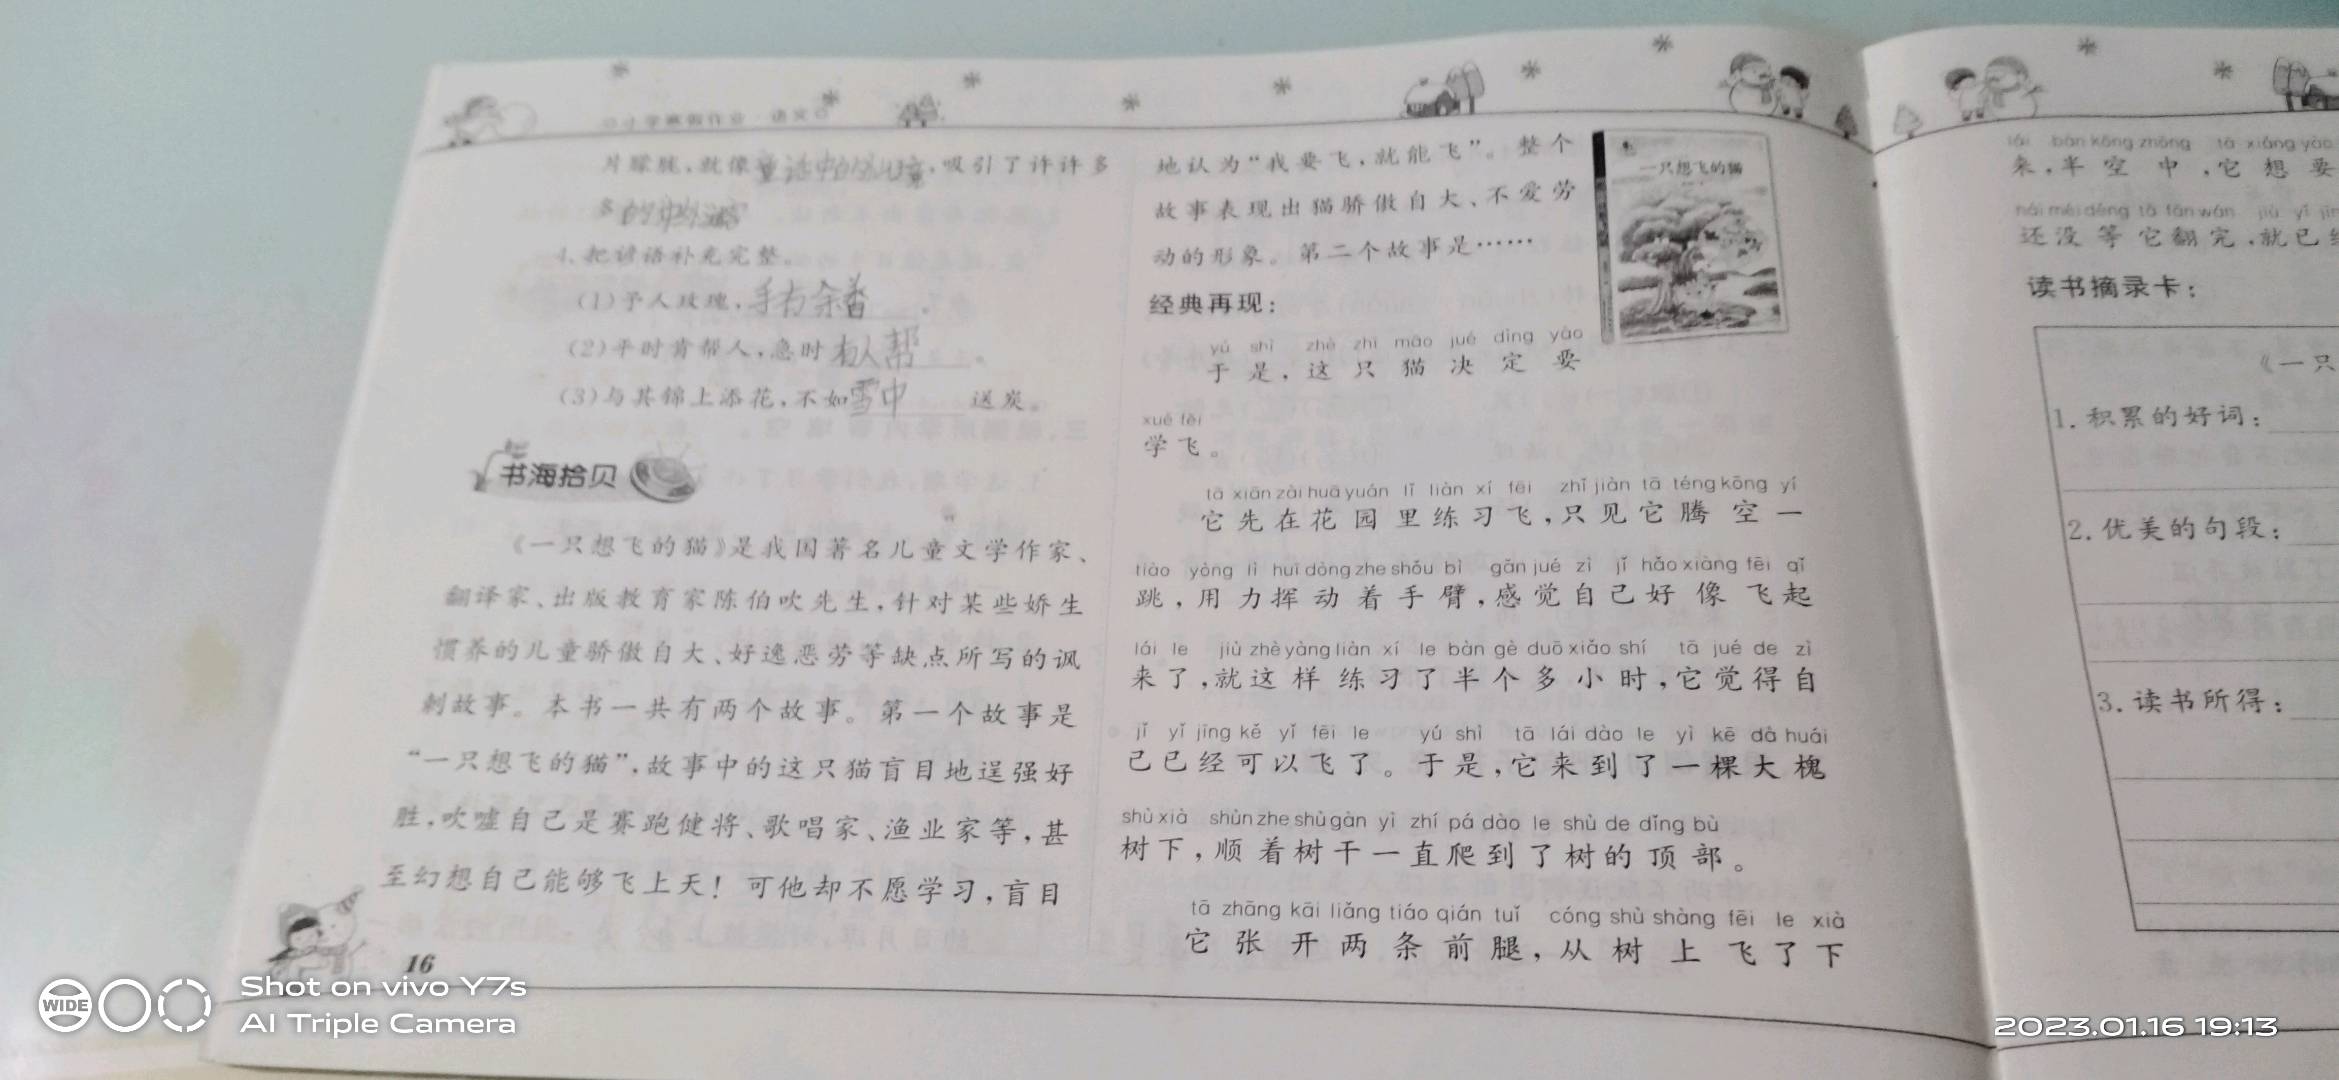 小学寒假作业·语文
片朦胧，就像童话中的仙境，吸引了许许多
多的中外游客
4.把谚语补充完整。
(1)予人玫瑰，手有余香。
(2)平时肯帮人，急时有人帮。
(3)与其锦上添花，不如雪中送炭。
书海拾贝
《一只想飞的猫》是我国著名儿童文学作家、
翻译家、出版教育家陈伯吹先生，针对某些娇生
惯养的儿童骄傲自大、好逸恶劳等缺点所写的讽
刺故事。本书一共有两个故事。第一个故事是
“一只想飞的猫”，故事中的这只猫盲目地逞强好
胜，吹嘘自己是赛跑健将、歌唱家、渔业家等，甚
至幻想自己能够飞上天！可他却不愿学习，盲目
16
地认为“我要飞，就能飞”。整个
故事表现出猫骄傲自大、不爱劳
动的形象。第二个故事是……
一只想飞的猫
经典再现：
yú shì zhè zhī māo jué dìng yào
于是，这只猫决定要
xué fēi
学飞。
tā xiān zài huā yuán lǐ liàn xí fēi zhǐ jiàn tā téng kōng yí
它先在花园里练习飞，只见它腾空一
tiào yòng lì huī dòng zhe shǒu bì gǎn jué zì jǐ hǎo xiàng fēi qǐ
跳，用力挥动着手臂，感觉自己好像飞起
lái le jiù zhè yàng liàn xí le bàn gè duō xiǎo shí tā jué de zì
来了，就这样练习了半个多小时，它觉得自
jǐ yǐ jīng kě yǐ fēi le yú shì tā lái dào le yì kē dà huái
己已经可以飞了。于是，它来到了一棵大槐
shù xià shùn zhe shù gàn yì zhí pá dào le shù de dǐng bù
树下，顺着树干一直爬到了树的顶部。
tā zhāng kāi liǎng tiáo qián tuǐ cóng shù shàng fēi le xià
它张开两条前腿，从树上飞了下
lái bàn kōng zhōng tā xiǎng yào
来，半空中，它想要
hái méi děng tā fān wán jiù yǐ
还没等它翻完，就已
读书摘录卡：
《一只
1.积累的好词：
2.优美的句段：
3.读书所得：
WIDE
Shot on vivo Y7s
AI Triple Camera
2023.01.16 19:13